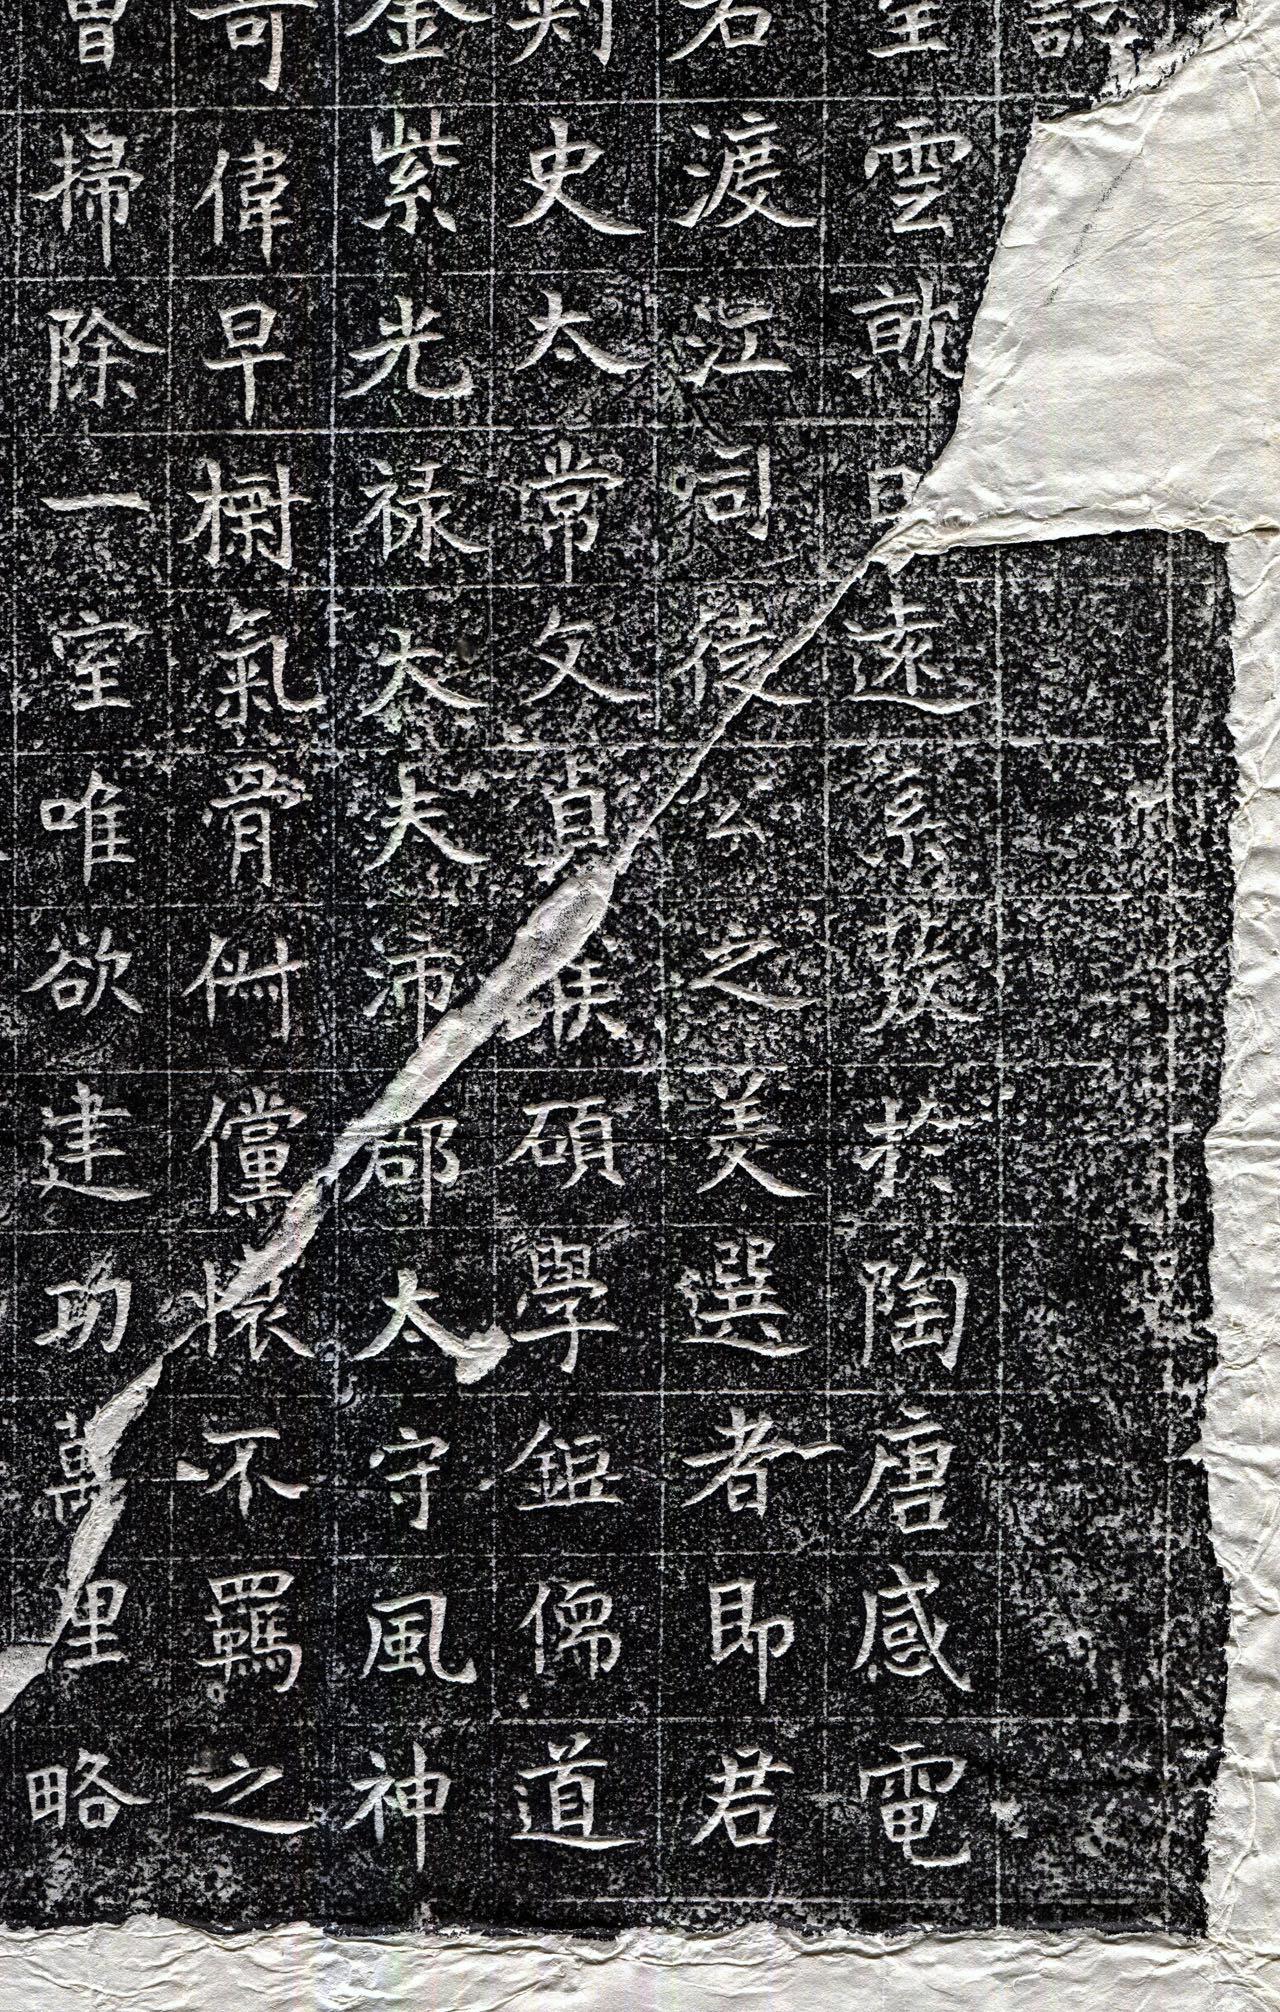 誌
雲就日遠系發於陶唐感電
君渡江司徒公之美選者即君
刾史太常文貞㑋碩學鉅儒道
金紫光禄大夫沛郡太守風神
奇偉早樹氣骨倜儻懷不羈之
曾掃除一室唯欲建功萬里略